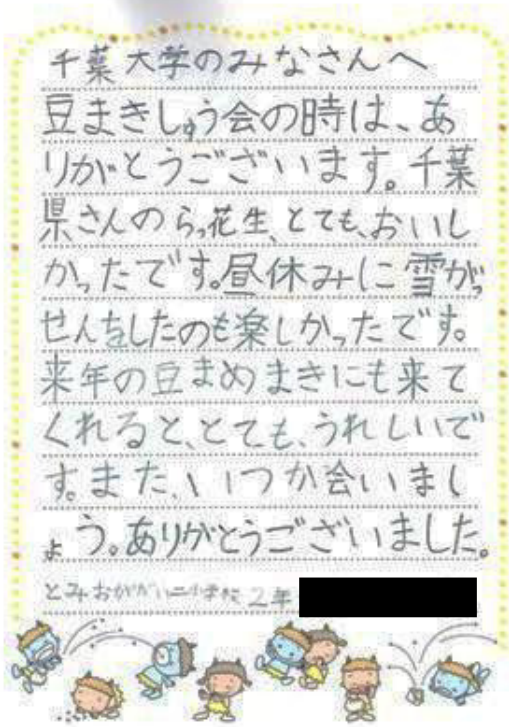 千葉大学のみなさんへ
豆まきしゅう会の時は、あ
りがとうございます。千葉
県さんのらっ花生、とても、おいし
かったです。昼休みに雪がっ
せんをしたのも楽しかったです。
来年の豆まめまきにも来て
くれると、とても、うれしいで
す。また、いつか会いまし
ょう。ありがとうございました。
とみおかだい二小学校 2年